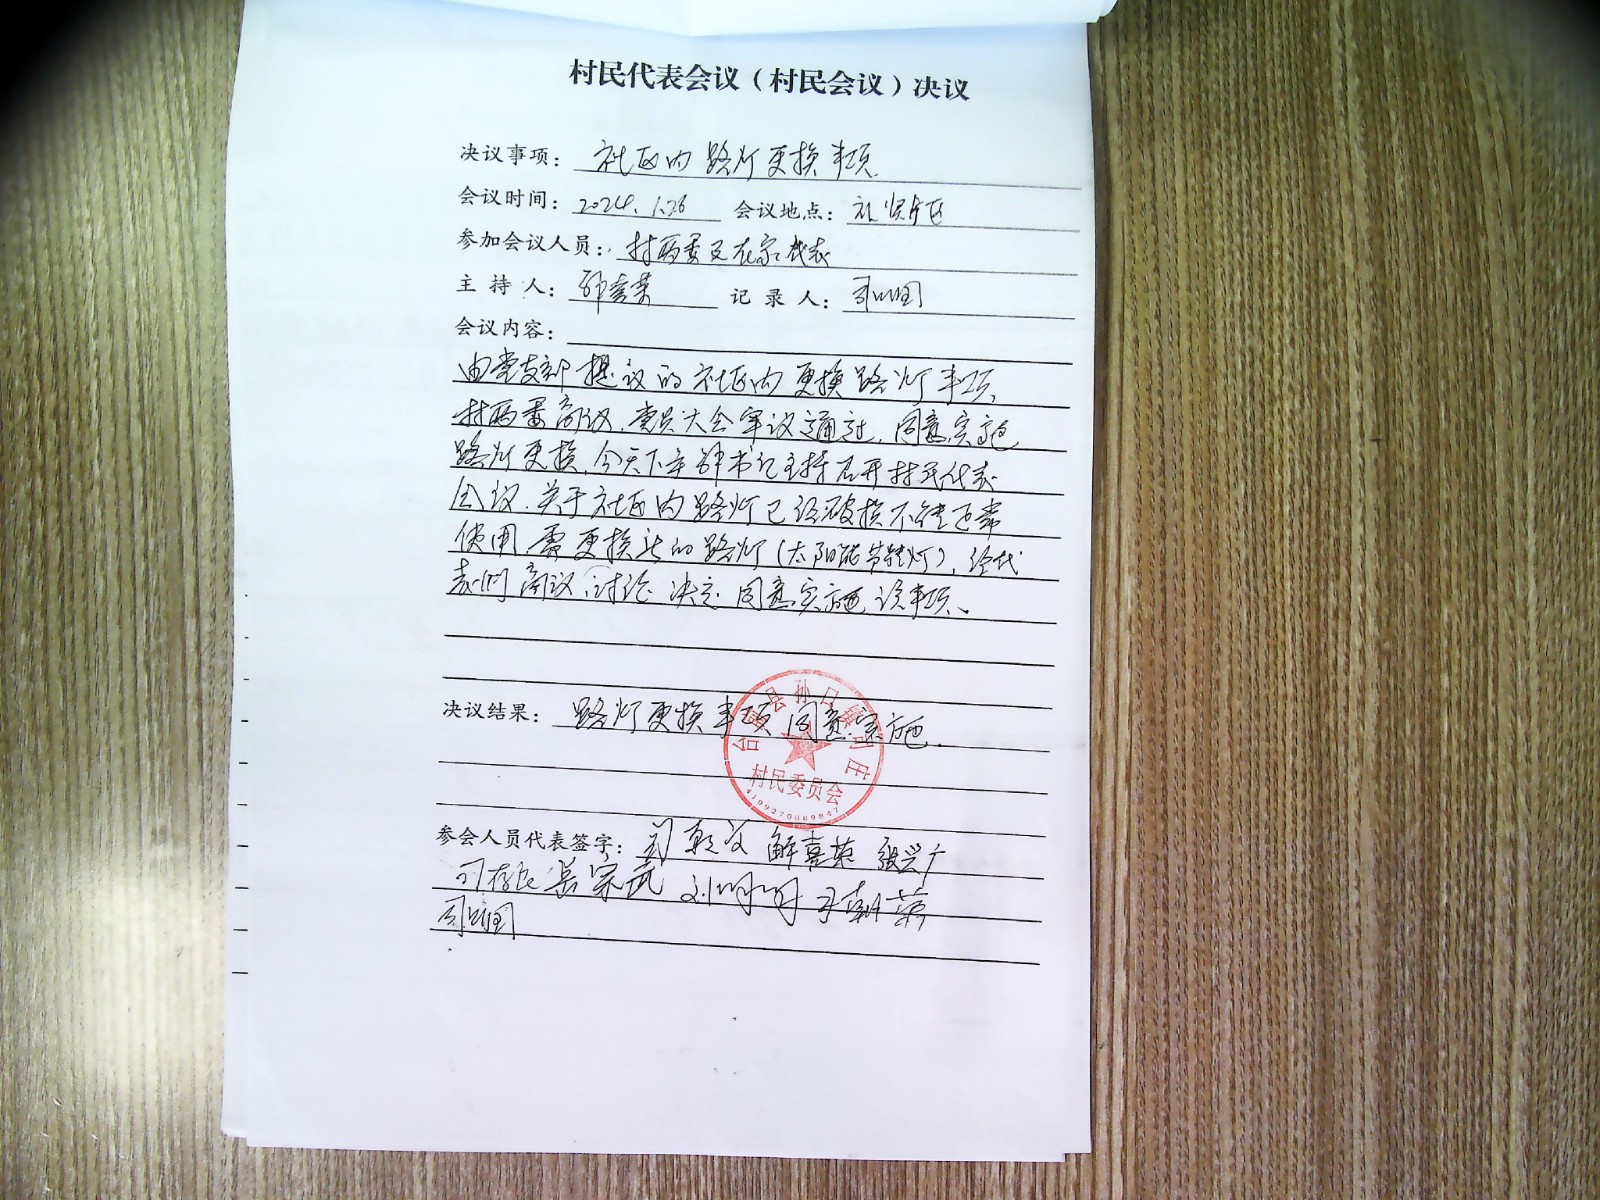 村民代表会议（村民会议）决议
决议事项：社区内路灯更换事项.
会议时间：2024.1.26 会议地点：社
参加会议人员：村两委及在家代表
主持人： 记录人：司
会议内容：
由党支部提议的社区内更换路灯事项、
村两委商议.党员大会审议通过.同意实施
路灯更换.今天下午解书记主持召开村民代表
会议.关于社区内路灯已经破损不能正常
使用.需更换新的路灯(太阳能节能灯)，经代
表们商议、讨论 决定 同意实施 该事项、
决议结果：路灯更换事项同意实施.
台前县孙口镇司庄
村民委员会
4109270009847
参会人员代表签字： 解喜荣 张兴广
司存 刘明月 荣
司